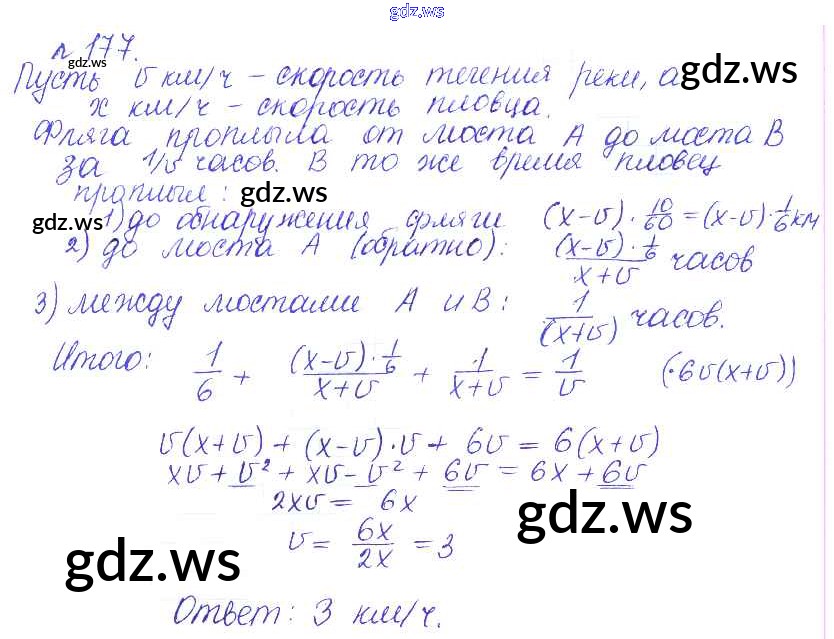 gdz.ws
n 177.
gdz.ws
Пусть υ км/ч – скорость течения реки, а
gdz.ws
x км/ч – скорость пловца.
Фляга проплыла от моста А до моста В
за 1/υ часов. В то же время пловец
проплыл:
gdz.ws
gdz.ws
1) до обнаружения фляги (x-υ)·10/60=(x-υ)·1/6 км
2) до моста А (обратно): (x-υ)·1/6 / x+υ часов
3) между мостами А и В: 1/(x+υ) часов.
Итого: 1/6 + (x-υ)·1/6 / x+υ + 1/x+υ = 1/υ (·6υ(x+υ))
υ(x+υ) + (x-υ)·υ + 6υ = 6(x+υ)
xυ + υ² + xυ - υ² + 6υ = 6x + 6υ
2xυ = 6x
gdz.ws
υ = 6x/2x = 3
gdz.ws
Ответ: 3 км/ч.